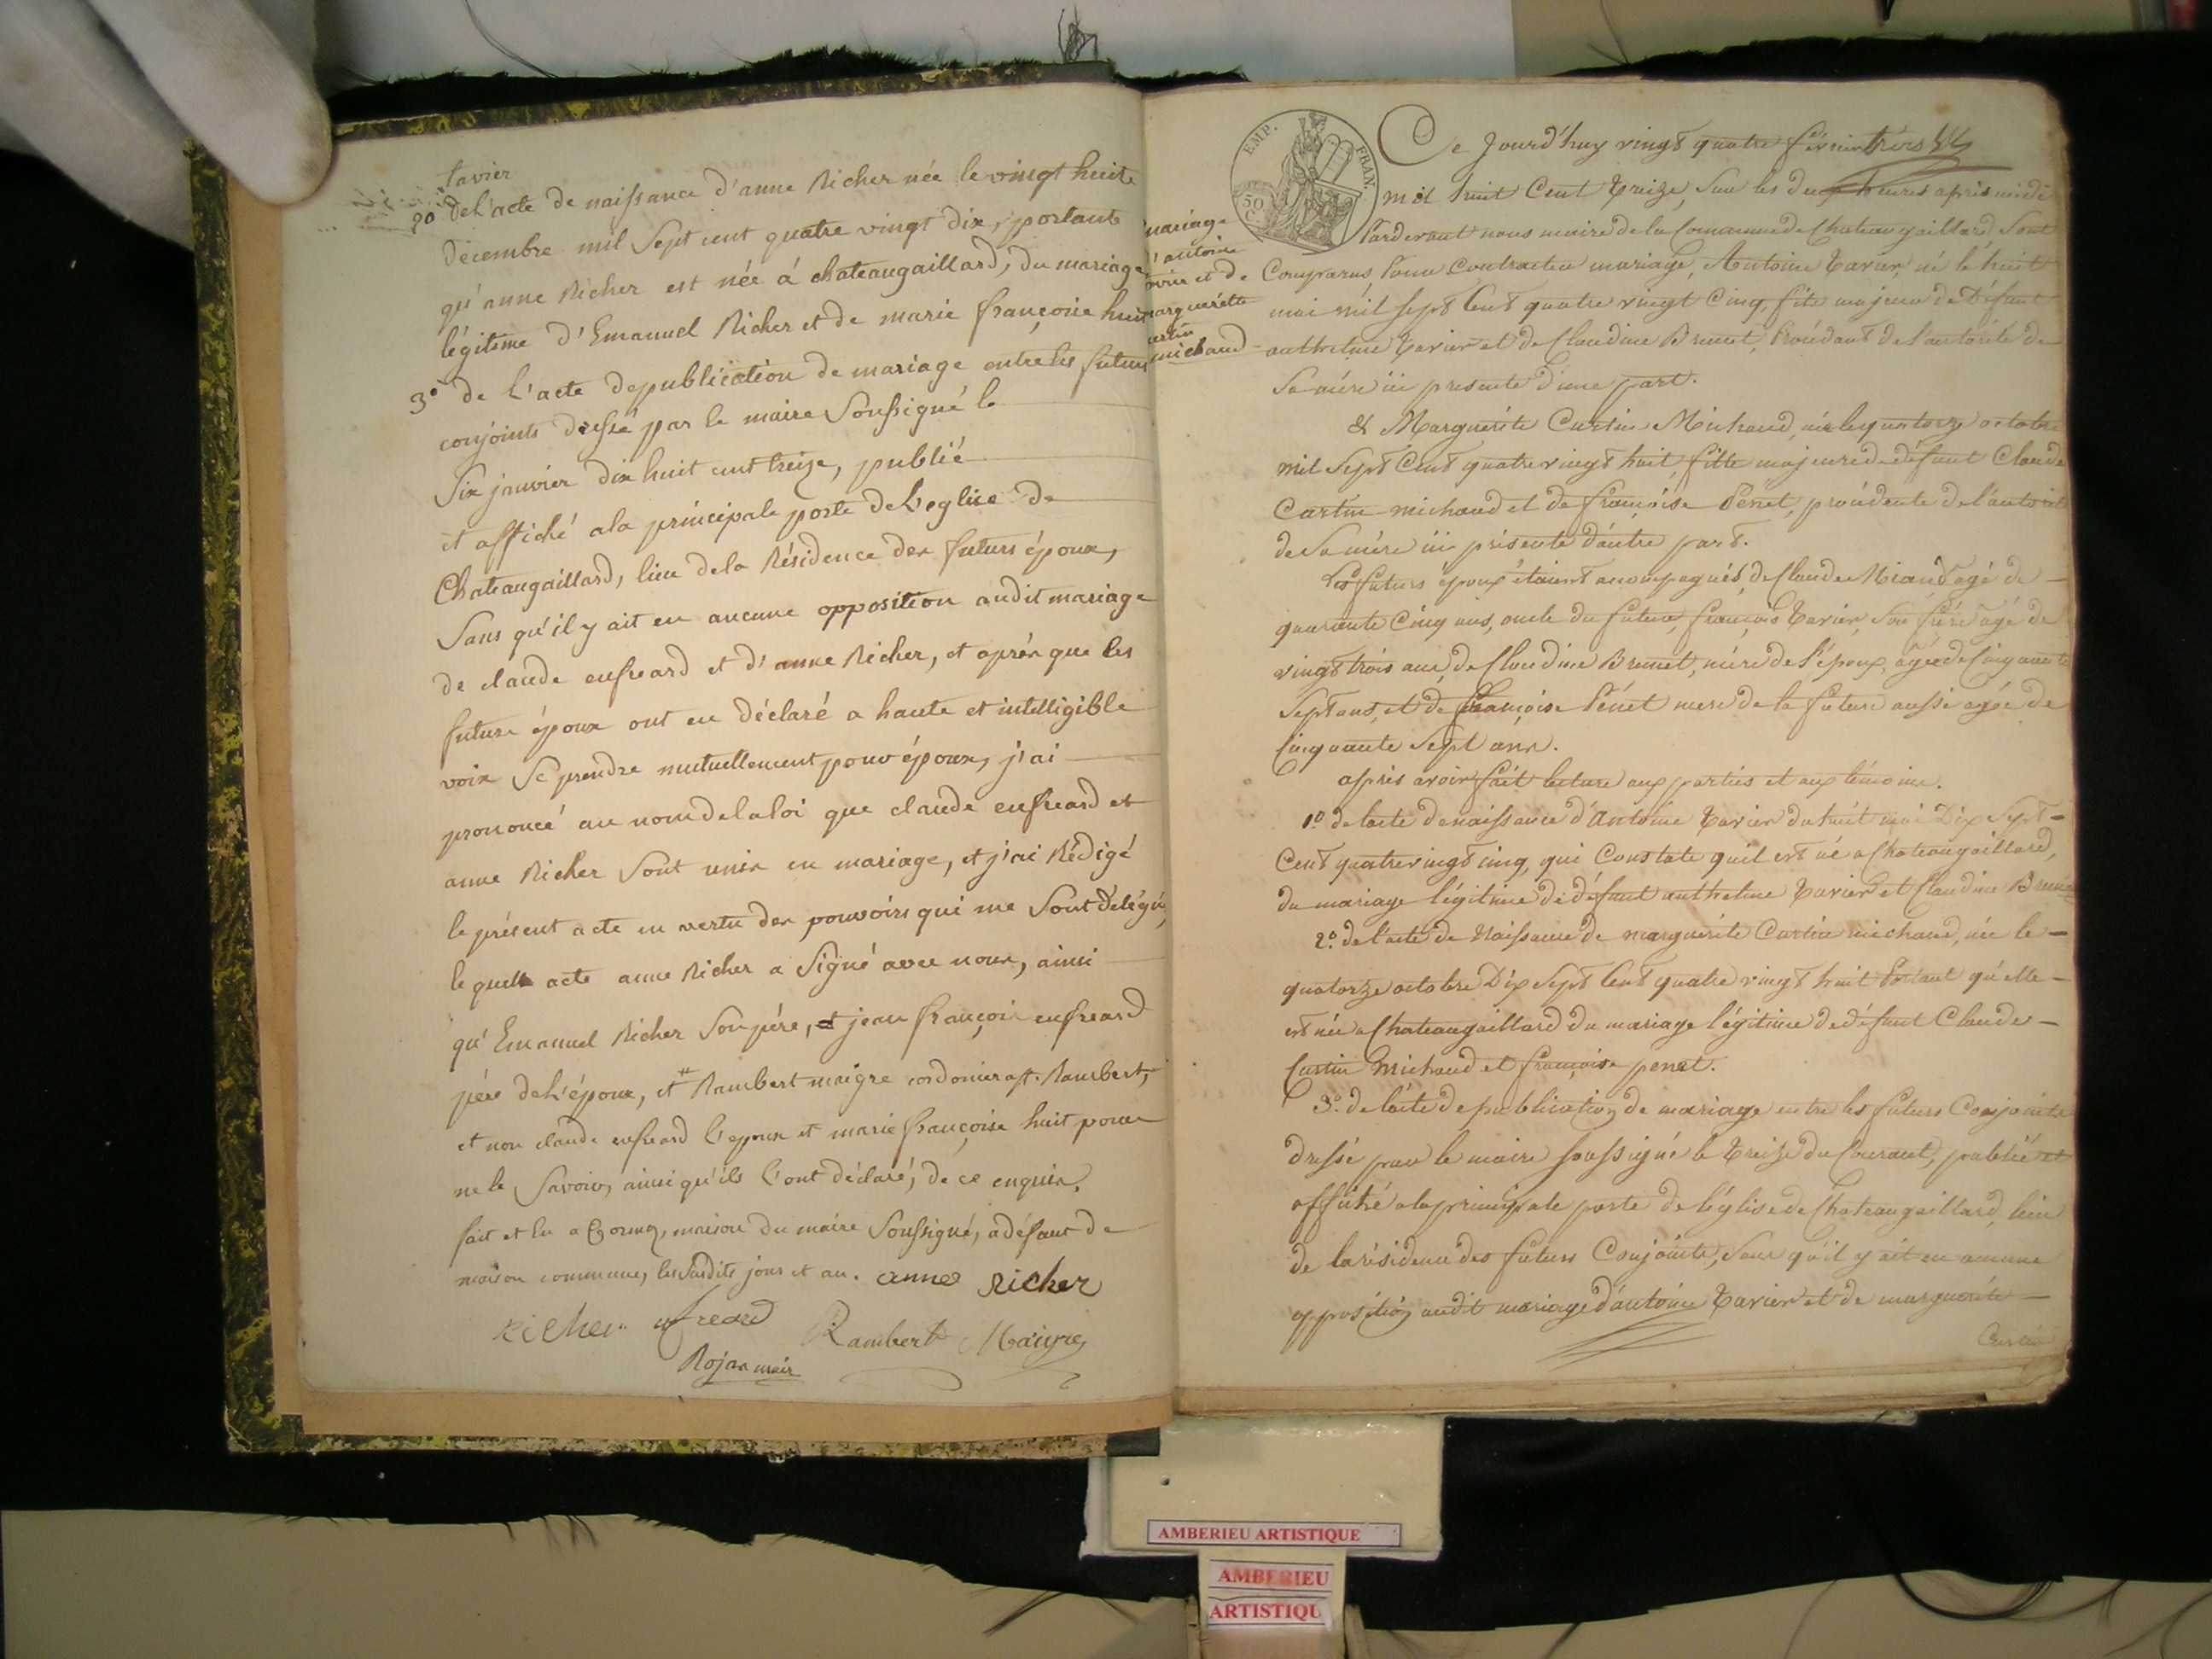 tavier
2o de l'acte de naissance d'anne Richer née le vingt huit
décembre mil sept cent quatre vingt dix, portant
qu'anne Richer est née á chateaugaillard, du mariage
légitime d'Emanuel Richer et de marie françoise huit
3o de l'acte de publication de mariage entre les futurs
conjoints dressé par le maire Soussigné le
Six janvier dix huit cent treize, publié
et affiché a la principale porte de l'eglise de
Chateaugaillard, lieu de la Résidence des futurs époux,
Sans qu'il y ait eu aucune opposition audit mariage
de claude enfreard et d'anne Richer, et après que les
futurs époux ont eu déclaré a haute et intelligible
voix Se prendre mutuellement pour époux, j'ai
prononcé au nom de la loi que claude enfreard et
anne Richer Sont unis en mariage, et j'ai Rédigé
le présent acte en vertu des pouvoirs qui me Sont délégués,
le quel acte anne Richer a Signé avec nous, ainsi
qu'Emanuel Richer Son pére, et jean françois enfreard
pére de l'époux, et Rambert maigre cordonier Rambert,
et non claude enfreard l'epoux et marie françoise huit pour
ne le Savoir, ainsi qu'ils l'ont déclaré, de ce enquis.
fait et lu a Cormoz, maison du maire Soussigné, a défaut de
maison commune, les Susdits jour et an. anne Richer
Richer enfreard Rambert Maigre
Rojat maire
EMP. FRAN.
50 C.
mariage
d'antoine
tavier et de
marguerite
curtin
michaud
Ce Jourd'huy vingt quatre février
mil huit Cent treize, Sur les deux heures après midi
Pardevant nous maire de la Commune de Chateaugaillard Sont
Comparus Pour Contracter mariage, Antoine tavier, né le huit
mai mil sept Cent quatre vingt Cinq, fils majeur de Défunt
anthelme tavier et de Claudine Brunet, Procédant de l'autorité de
Sa mére ici presente d'une part.
& Marguerite Curtin Michaud, née le quatorze octobre
mil Sept Cent quatre vingt huit, fille majeure de défunt Claude
Curtin michaud et de françoise Penet, procédante de l'autorité
de Sa mére ici présente d'autre part.
Les futurs époux étaient accompagnés de Claude agé de
quarante Cinq ans, oncle du futur, françois tavier, Son frére agé de
vingt trois ans, de Claudine Brunet, mére de l'époux, agée de Cinquante
Sept ans, et de françoise Pénet mere de la future aussi agée de
Cinquante Sept ans.
après avoir fait lecture aux parties et aux témoins.
1o de l'acte de naissance d'Antoine tavier du huit mai Dix Sept
Cent quatre vingt cinq, qui Constate qu'il est né a Chateaugaillard,
du mariage légitime de défunt anthelme tavier et Claudine Brunet
2o de l'acte de Naissance de marguerite Curtin michaud, née le
quatorze octobre Dix Sept Cent quatre vingt huit Portant qu'elle
est née a Chateaugaillard du mariage légitime de défunt Claude
Curtin Michaud et françoise penet.
3o de l'acte de publication de mariage entre les futurs Conjoints
dressé par le maire soussigné le treize du Courant, publié et
affiché a la principale porte de l'église de Chateaugaillard, lieu
de la résidence des futurs Conjoints, Sans qu'il y ait eu aucune
opposition audit mariage d'antoine tavier et de marguerite
Curtin
AMBERIEU ARTISTIQUE
AMBERIEU
ARTISTIQU